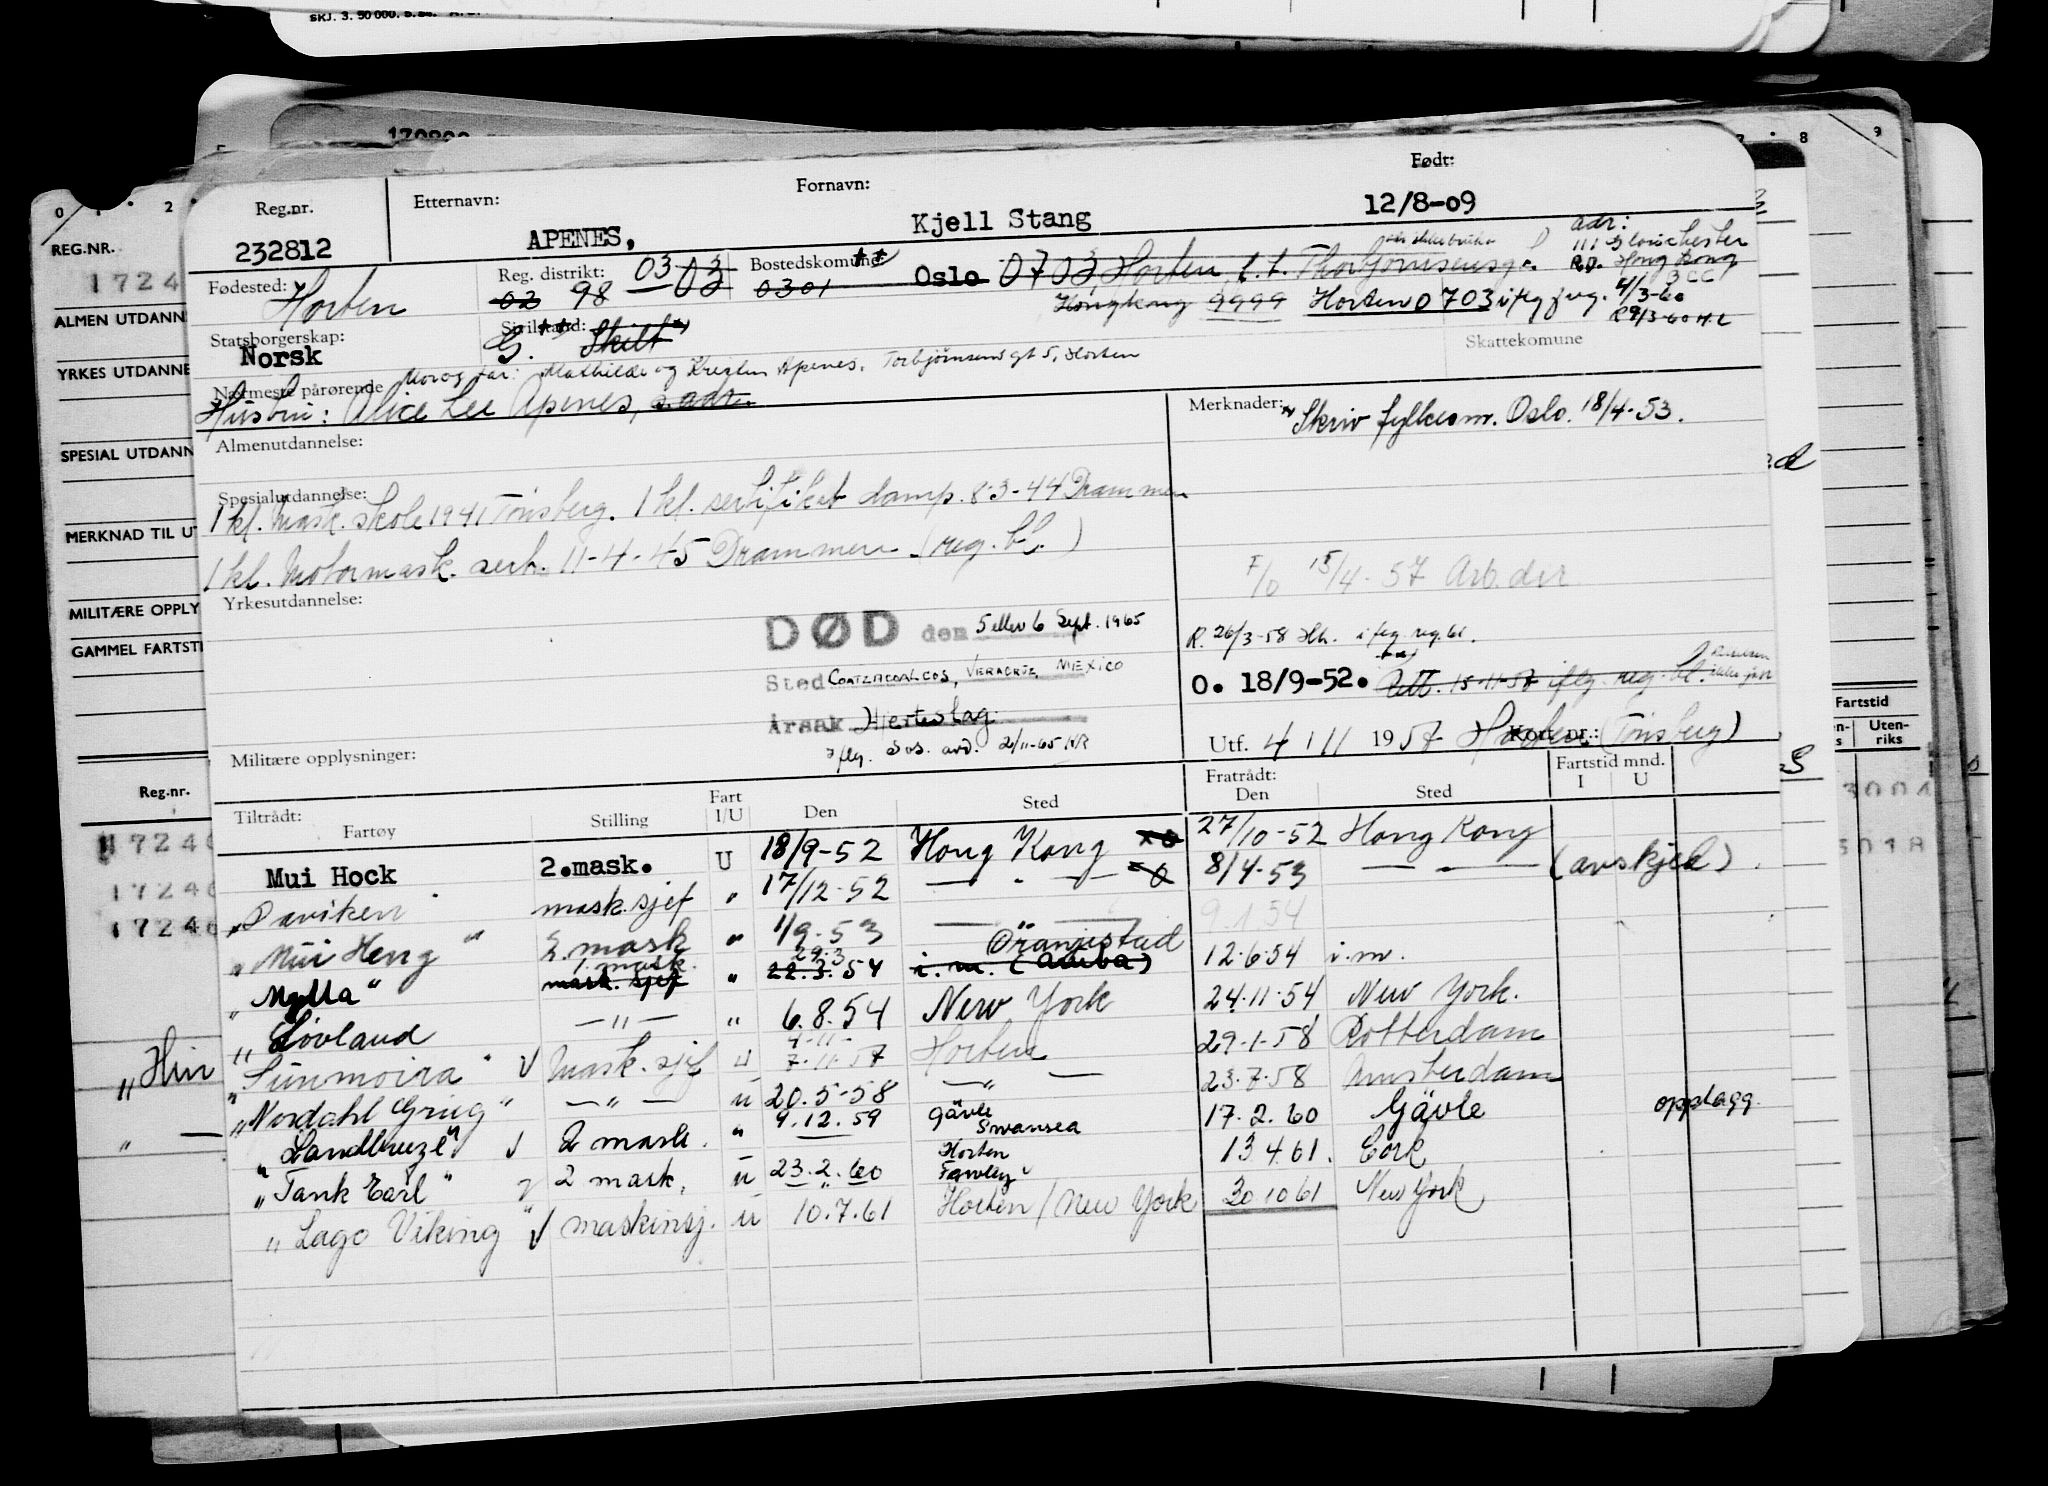 SKJ. 3. 50 000. 5.
Reg.nr. Etternavn: Fornavn: Født:
232812 APENES, Kjell Stang 12/8-09
adr:
111 Glouchester
Rd. Hong Kong
4/3-60
Fødested: Horten Reg. distrikt: 02 98 03 03 Bostedskomune ** 0301 Oslo 0703 Horten,
Hongkong 9999 Horten 0703 iflg
Statsborgerskap: Norsk Sivilstand: ** G. Skilt Skattekomune
Nærmeste pårørende Mor og far: Mathilde og Apenes, Torbjørnsens gt 5, Horten
Hustru: Alice Lee Apenes, s. adr.
Merknader: Skriv fylkesm. Oslo. 18/4-53.
Almenutdannelse:
Spesialutdannelse:
1 kl. Mask. skole 1941 Tønsberg. 1 kl. sertifikat damp. 8-3-44 Drammen
1 kl. Motormask. sert. 11-4-45 Drammen (reg. bl.)
F/O 15/4-57 Arb.dir.
Yrkesutdannelse:
DØD den 5 eller 6 Sept. 1965
Sted COATZACOALCOS, VERACRUZ, MEXICO
Årsak Hjerteslag
iflg. Sos. avd. 2/11-65 KR
R. 26/3-58 Hh. iflg. reg. bl.
O. 18/9-52. Rett. 15-11-57 iflg. reg. bl.
Utf. 4/11 1957 Horten (Tønsberg) Kort nr.:
Militære opplysninger:
Tiltrådt: Fratrådt: Fartstid mnd.
Fartøy Stilling Fart I/U Den Sted Den Sted I U
Mui Hock 2.mask. U 18/9-52 Hong Kong 27/10-52 Hong Kong
"Daviken" mask.sjef " 17/12-52 — " — 8/4-53 — " — (avskjed)
"Mui Heng" 2. mask " 1/9-53 — " — 9.1.54
"Molla" 1. mask. mask. sjef " 29.3 22.3.54 Oranjestad i.m. (Aruba) 12.6.54 i.m.
"Løvland — " — " 6.8.54 New York 24.11.54 New York.
"Sunmoira" √ Mask. sjef u 4-11- 7-11-57 Horten 29-1-58 Rotterdam
"Nordahl Grieg" — " — u 20.5-58 — " — 23.7.58 Amsterdam
"Landbreeze" √ 2 mask. " 9.12.59 Gävle Swansea 17.2.60 Gävle opplagg.
"Tank Earl" 2 mask. u 23.2.60 Horten Fawley 13.4.61. Cork
"Lago Viking" √ maskinsj. u 10.7.61 Horten / New York 30 10 61 New York
REG.NR.
1724
ALMEN UTDANN
YRKES UTDANNE
SPESIAL UTDANN
MERKNAD TIL UT
MILITÆRE OPPLY
GAMMEL FARTSTI
Reg.nr.
17240
17240
17240
"Hin
Fartstid
Uten-
riks
3001
3018